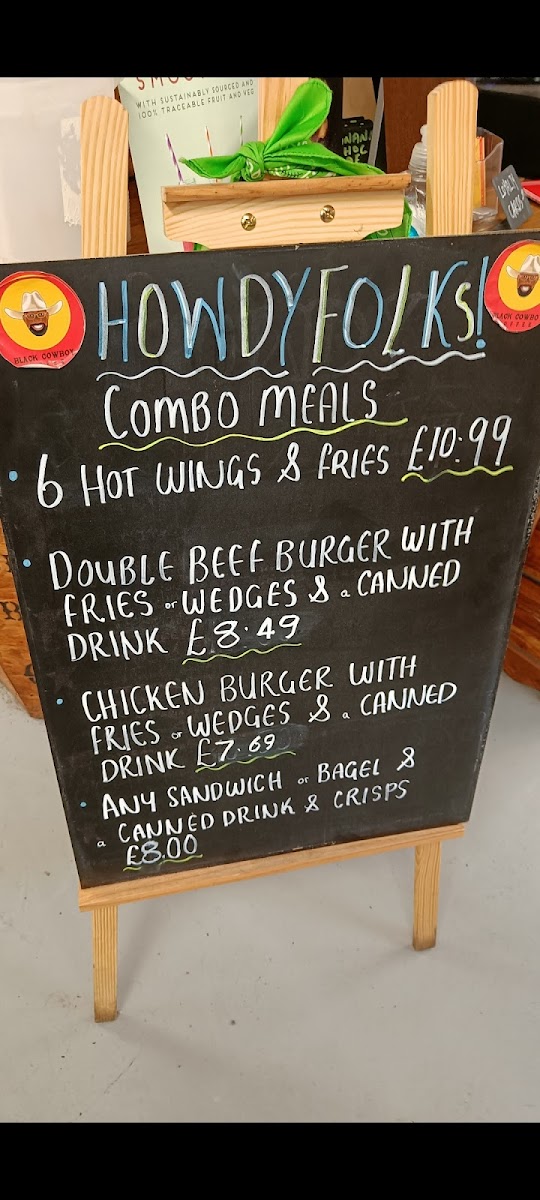 SMOO
WITH SUSTAINABLY SOURCED AND
100% TRACEABLE FRUIT AND VEG
HOWDY FOLKS!
BLACK COWBOY
BLACK COWBOY
COFFEE
COMBO MEALS
• 6 HOT WINGS & FRIES £10.99
• DOUBLE BEEF BURGER WITH
FRIES or WEDGES & a CANNED
DRINK £8.49
• CHICKEN BURGER WITH
FRIES or WEDGES & a CANNED
DRINK £7.69
• ANY SANDWICH or BAGEL &
a CANNED DRINK & CRISPS
£8.00